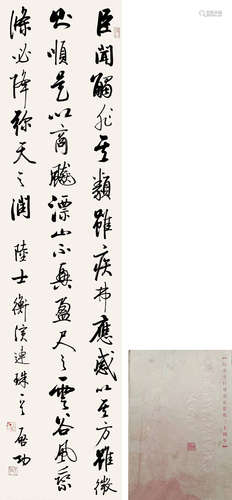 臣聞觸非其類雖疾弗應感以其方雖微
則順是以商飈漂山不興盈尺之雲谷風乘
條必降弥天之潤 陸士衡演連珠 啟功